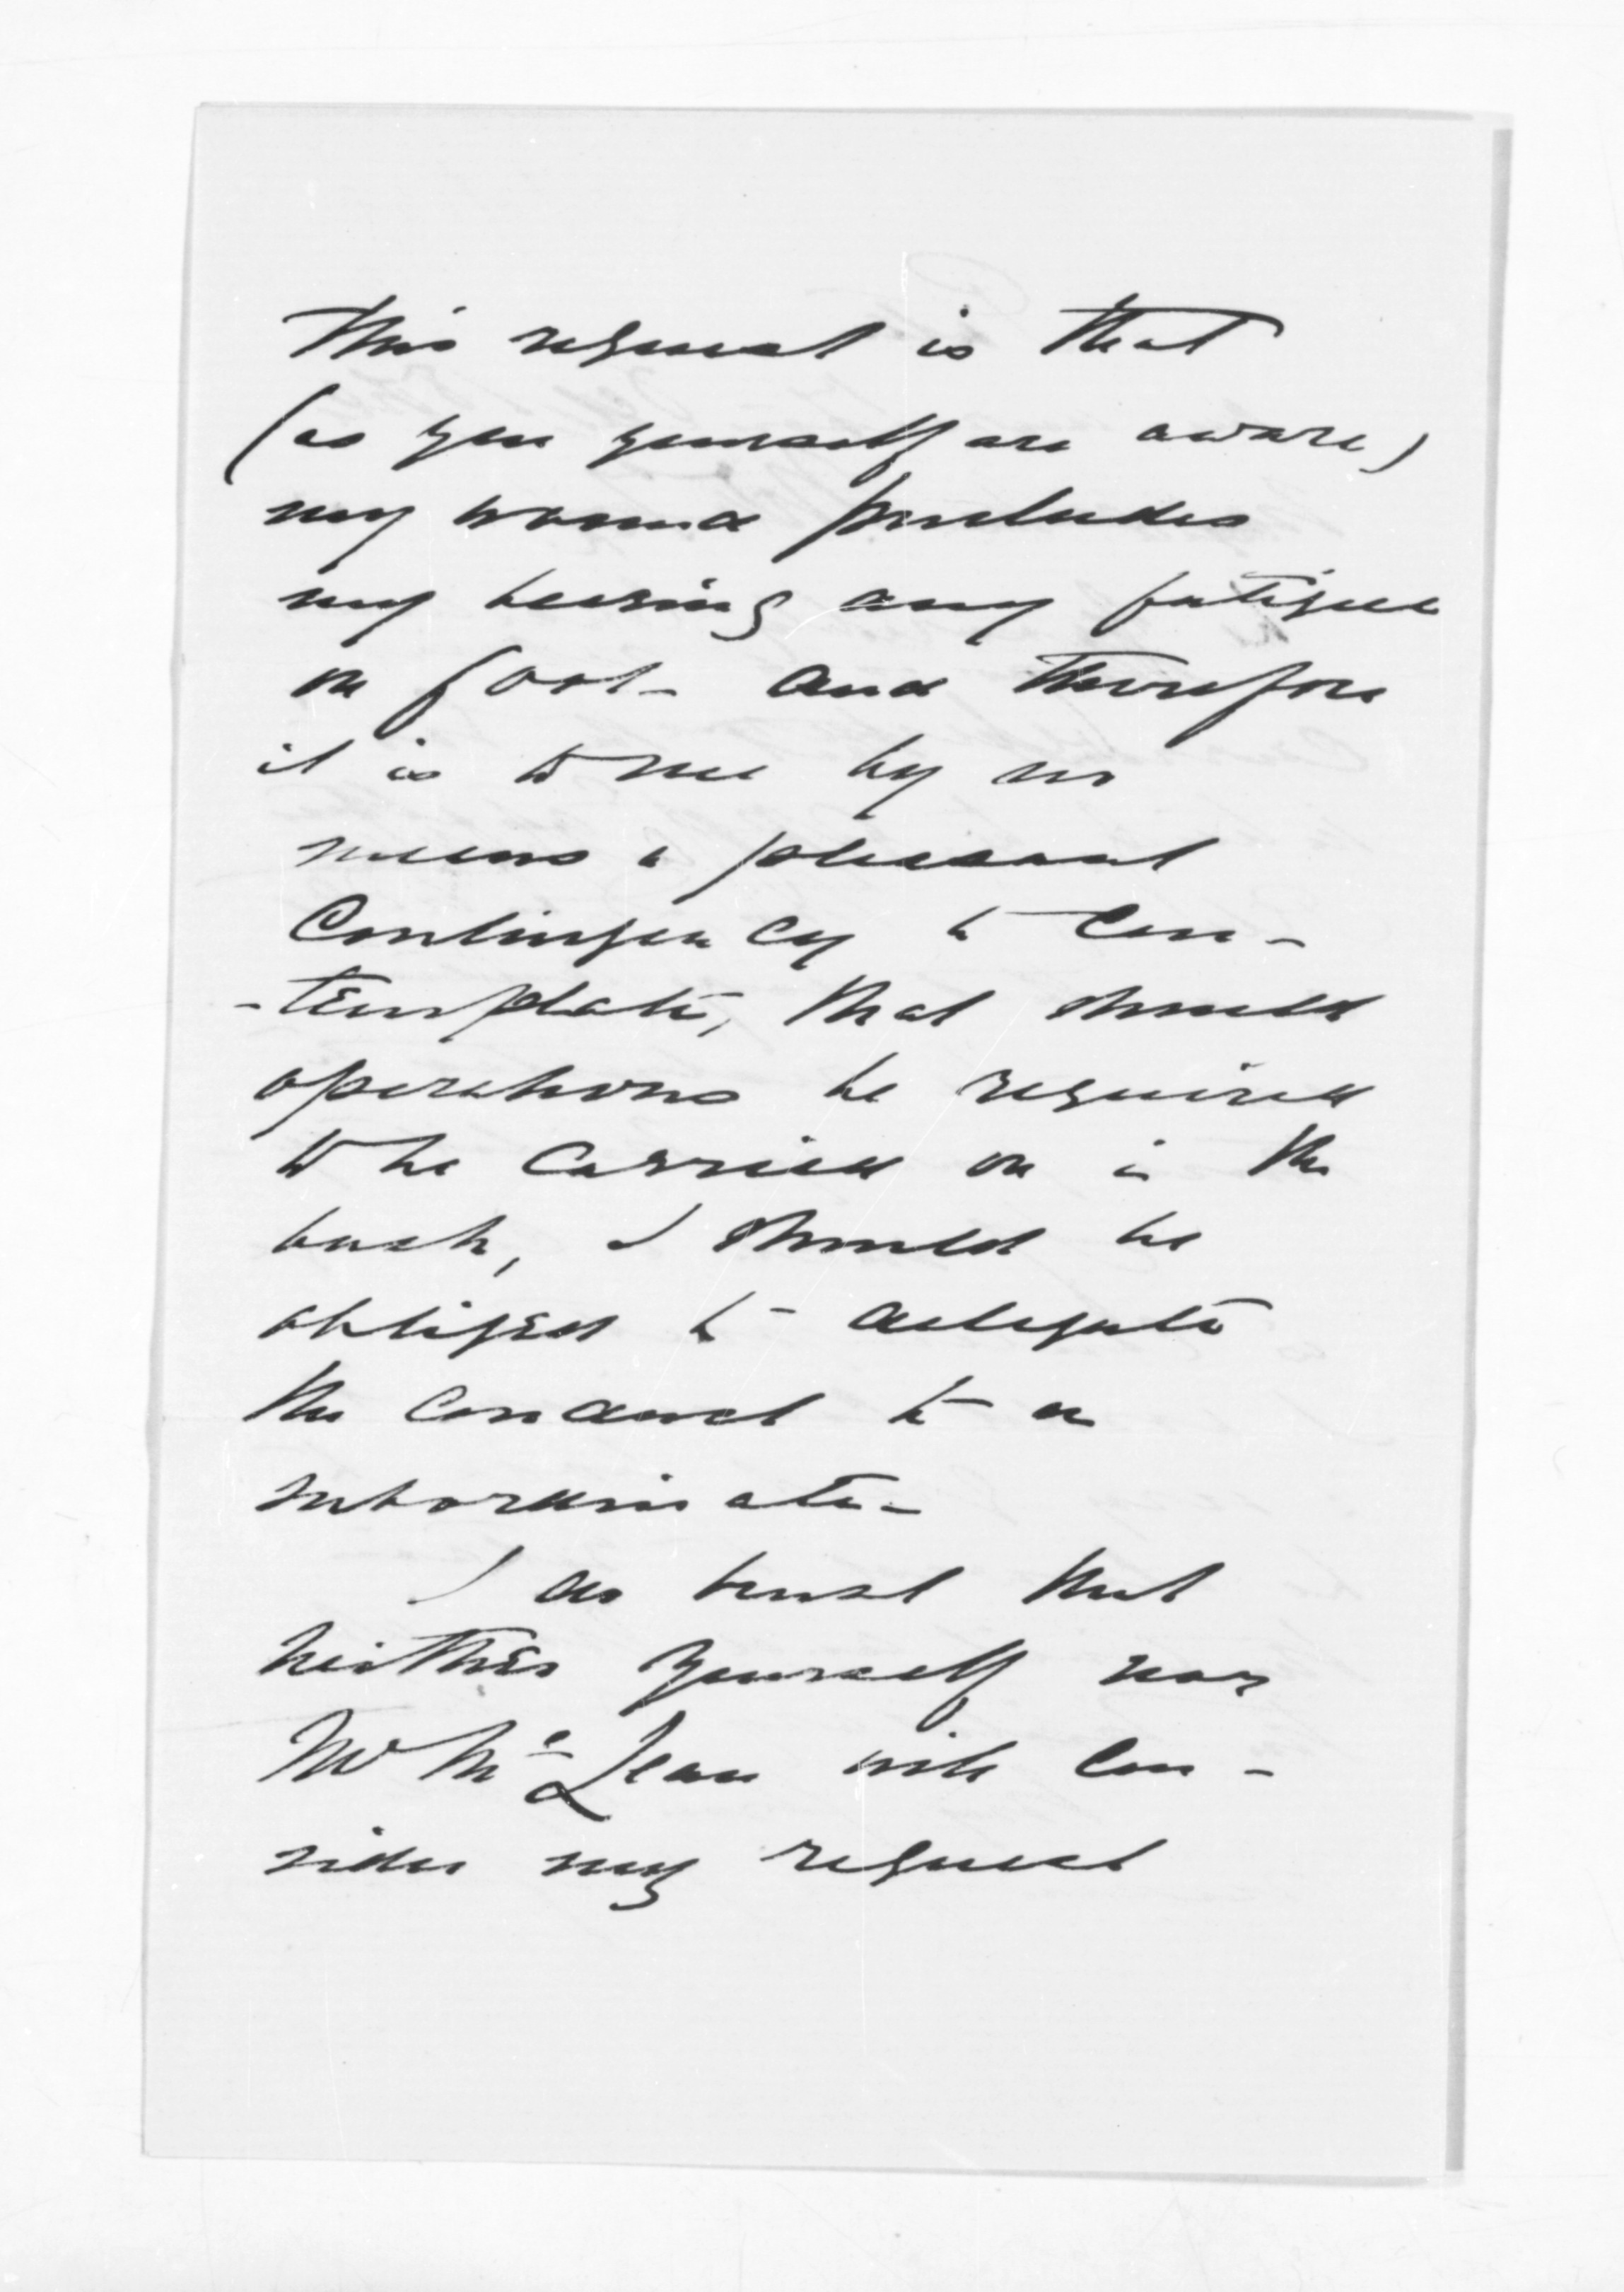 this request is that
(as you yourself are aware)
my wound precludes
my bearing any fatigue
on foot - and therefore
it is to me by no
means a pleasant
Contingency to Con-
-template, that should
operations be required
to be carried on in the
bush, I should be
obliged to delegate
the conduct to a
subordinate -
I do trust that
neither yourself nor
Mr McLean will Con-
sider my request